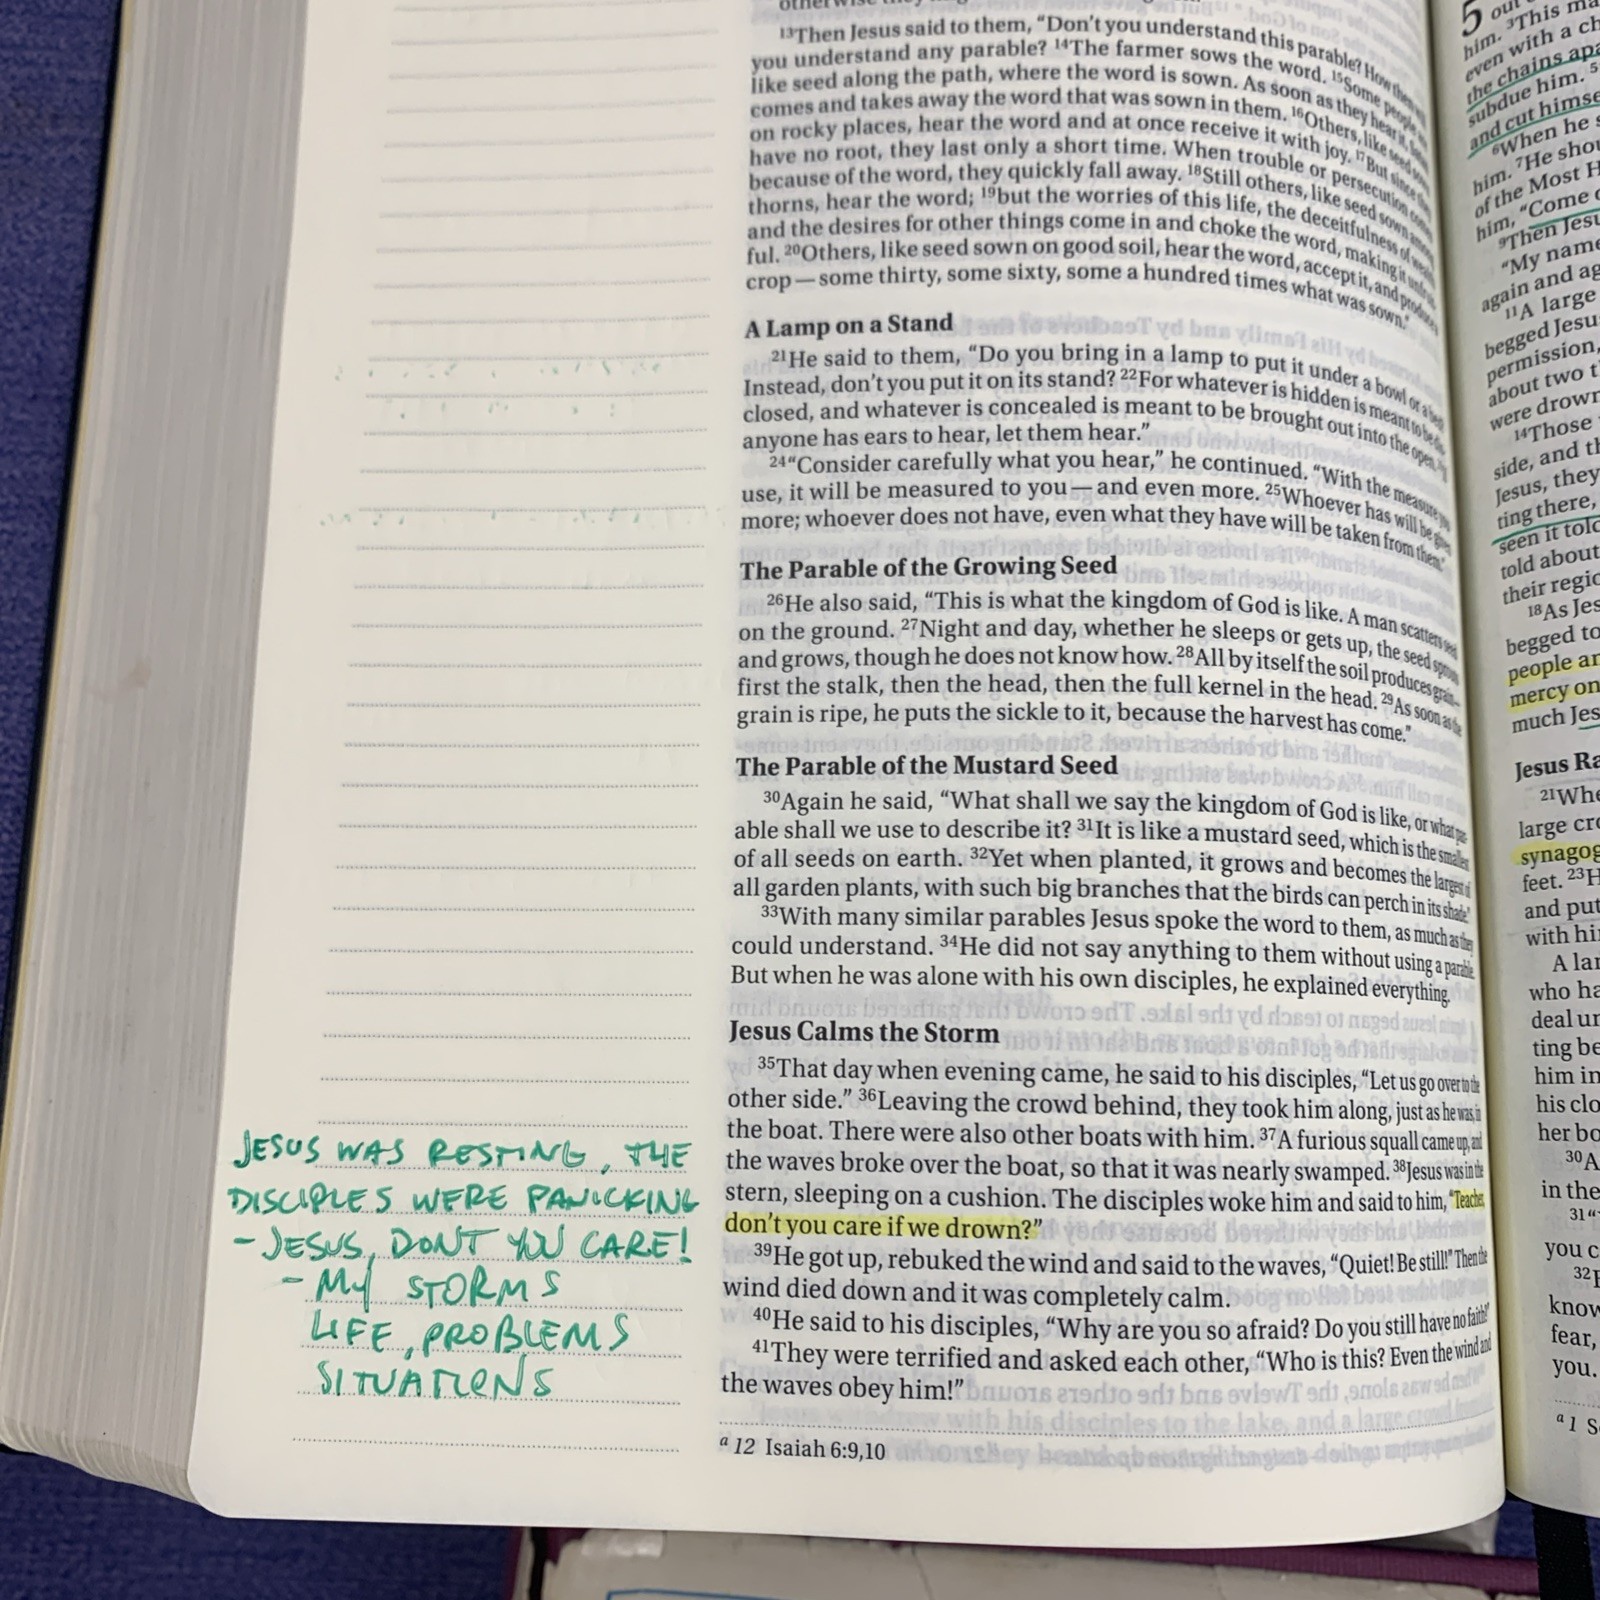 13Then Jesus said to them, “Don’t you understand this parable? How then will
you understand any parable? 14The farmer sows the word. 15Some people are
like seed along the path, where the word is sown. As soon as they hear it,
comes and takes away the word that was sown in them. 16Others, like seed sown
on rocky places, hear the word and at once receive it with joy. 17But since they
have no root, they last only a short time. When trouble or persecution comes
because of the word, they quickly fall away. 18Still others, like seed sown among
thorns, hear the word; 19but the worries of this life, the deceitfulness of wealth
and the desires for other things come in and choke the word, making it unfruit-
ful. 20Others, like seed sown on good soil, hear the word, accept it, and produce
crop — some thirty, some sixty, some a hundred times what was sown.”
A Lamp on a Stand
21He said to them, “Do you bring in a lamp to put it under a bowl or a bed?
Instead, don’t you put it on its stand? 22For whatever is hidden is meant to be dis-
closed, and whatever is concealed is meant to be brought out into the open.
anyone has ears to hear, let them hear.”
24“Consider carefully what you hear,” he continued. “With the measure you
use, it will be measured to you — and even more. 25Whoever has will be given
more; whoever does not have, even what they have will be taken from them.”
The Parable of the Growing Seed
26He also said, “This is what the kingdom of God is like. A man scatters seed
on the ground. 27Night and day, whether he sleeps or gets up, the seed sprouts
and grows, though he does not know how. 28All by itself the soil produces grain—
first the stalk, then the head, then the full kernel in the head. 29As soon as the
grain is ripe, he puts the sickle to it, because the harvest has come.”
The Parable of the Mustard Seed
30Again he said, “What shall we say the kingdom of God is like, or what par-
able shall we use to describe it? 31It is like a mustard seed, which is the smallest
of all seeds on earth. 32Yet when planted, it grows and becomes the largest of
all garden plants, with such big branches that the birds can perch in its shade.”
33With many similar parables Jesus spoke the word to them, as much as they
could understand. 34He did not say anything to them without using a parable.
But when he was alone with his own disciples, he explained everything.
Jesus Calms the Storm
35That day when evening came, he said to his disciples, “Let us go over to the
other side.” 36Leaving the crowd behind, they took him along, just as he was, in
the boat. There were also other boats with him. 37A furious squall came up, and
the waves broke over the boat, so that it was nearly swamped. 38Jesus was in the
stern, sleeping on a cushion. The disciples woke him and said to him, “Teacher,
don’t you care if we drown?”
39He got up, rebuked the wind and said to the waves, “Quiet! Be still!” Then the
wind died down and it was completely calm.
40He said to his disciples, “Why are you so afraid? Do you still have no faith?”
41They were terrified and asked each other, “Who is this? Even the wind and
the waves obey him!”
a 12 Isaiah 6:9,10
JESUS WAS RESTING, THE
DISCIPLES WERE PANICKING
- JESUS, DON'T YOU CARE!
- MY STORMS
LIFE, PROBLEMS
SITUATIONS
5 out
him. 3This
even with a
the chains
subdue him. 5
and cut
6When he
7He
him.
of the Most
him, “Come
9Then
“My name
again and
11A large
begged
permission,
about two
were
14Those
side, and
Jesus, they
ting there,
seen it told
told about
their
18As
begged to
people
mercy on
much
Jesus
21
large
feet. 23
and put
with
A
who
deal
ting
him in
his
her
30
in the
31“
you
32
know
fear,
you.
a 1